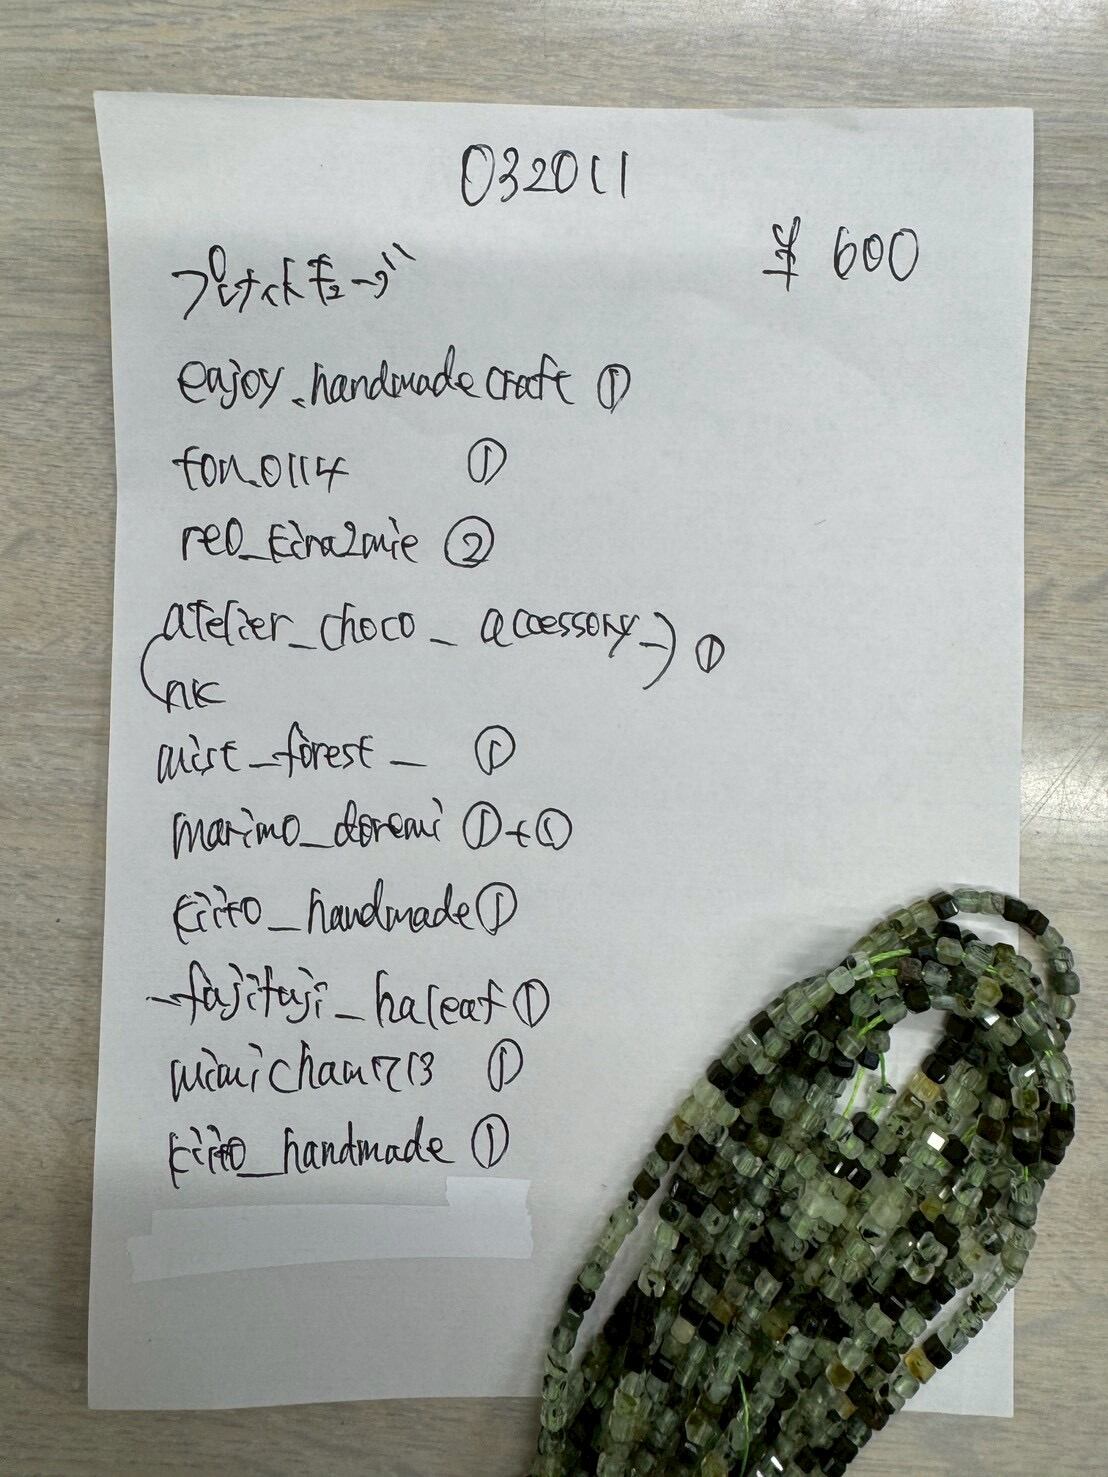 032011
¥ 600
プレナイトキューブ
enjoy.handmadecraft ①
fon.0114 ①
reo_kira2mie ②
atelier_choco_accessory_ ①
nk
mist_forest_ ①
marimo_doremi ①+①
kiito_handmade ①
_fujifuji_haleaf ①
mimichan713 ①
kiito_handmade ①